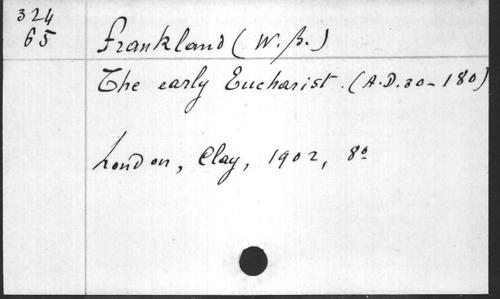 324
65
Frankland (W. B.)
The early Eucharist. (A.D. 30-180)
London, Clay, 1902, 8º